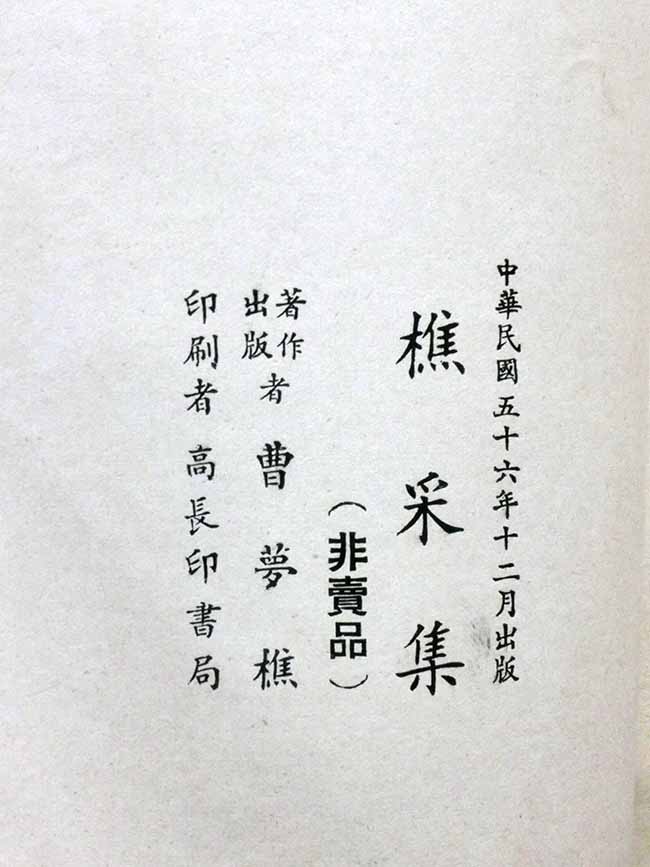 中華民國五十六年十二月出版
樵采集
（非賣品）
著作
出版
者曹夢樵
印刷者高長印書局